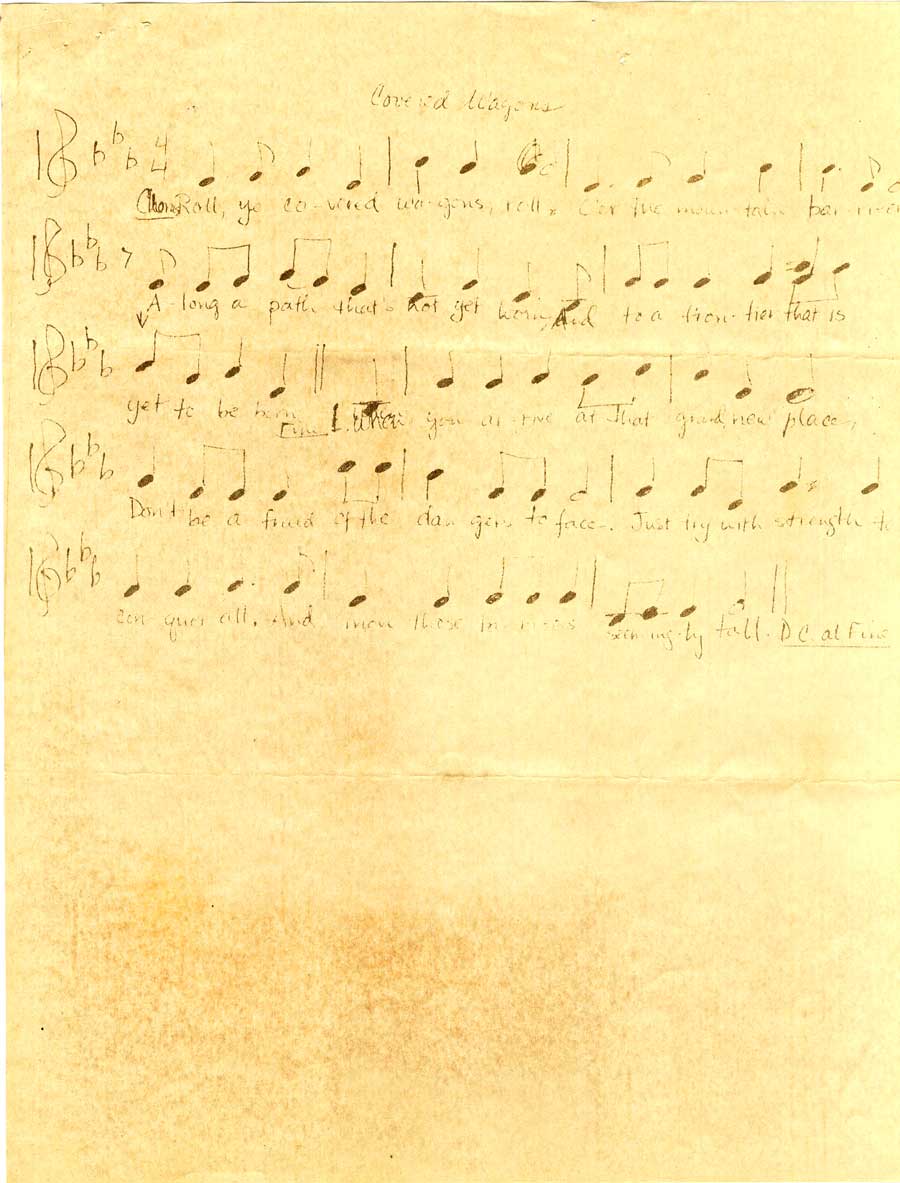 Covered Wagons
4 4 Chorus Roll, ye co-vered wa-gons, roll, O'er the moun-tain bar-riers
A-long a path that's not yet worn, And to a fron-tier that is
yet to be born Fine 1. When you ar-rive at that grand new place,
Don't be a fraid of the dan gers to face. Just try with strength to
con quer all, And then those seem-ing-ly tall. D.C. al Fine